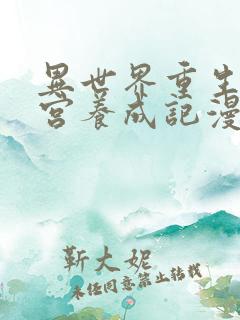 異世界重生
宮養成記漫
靳大妮
未经同意禁止转载